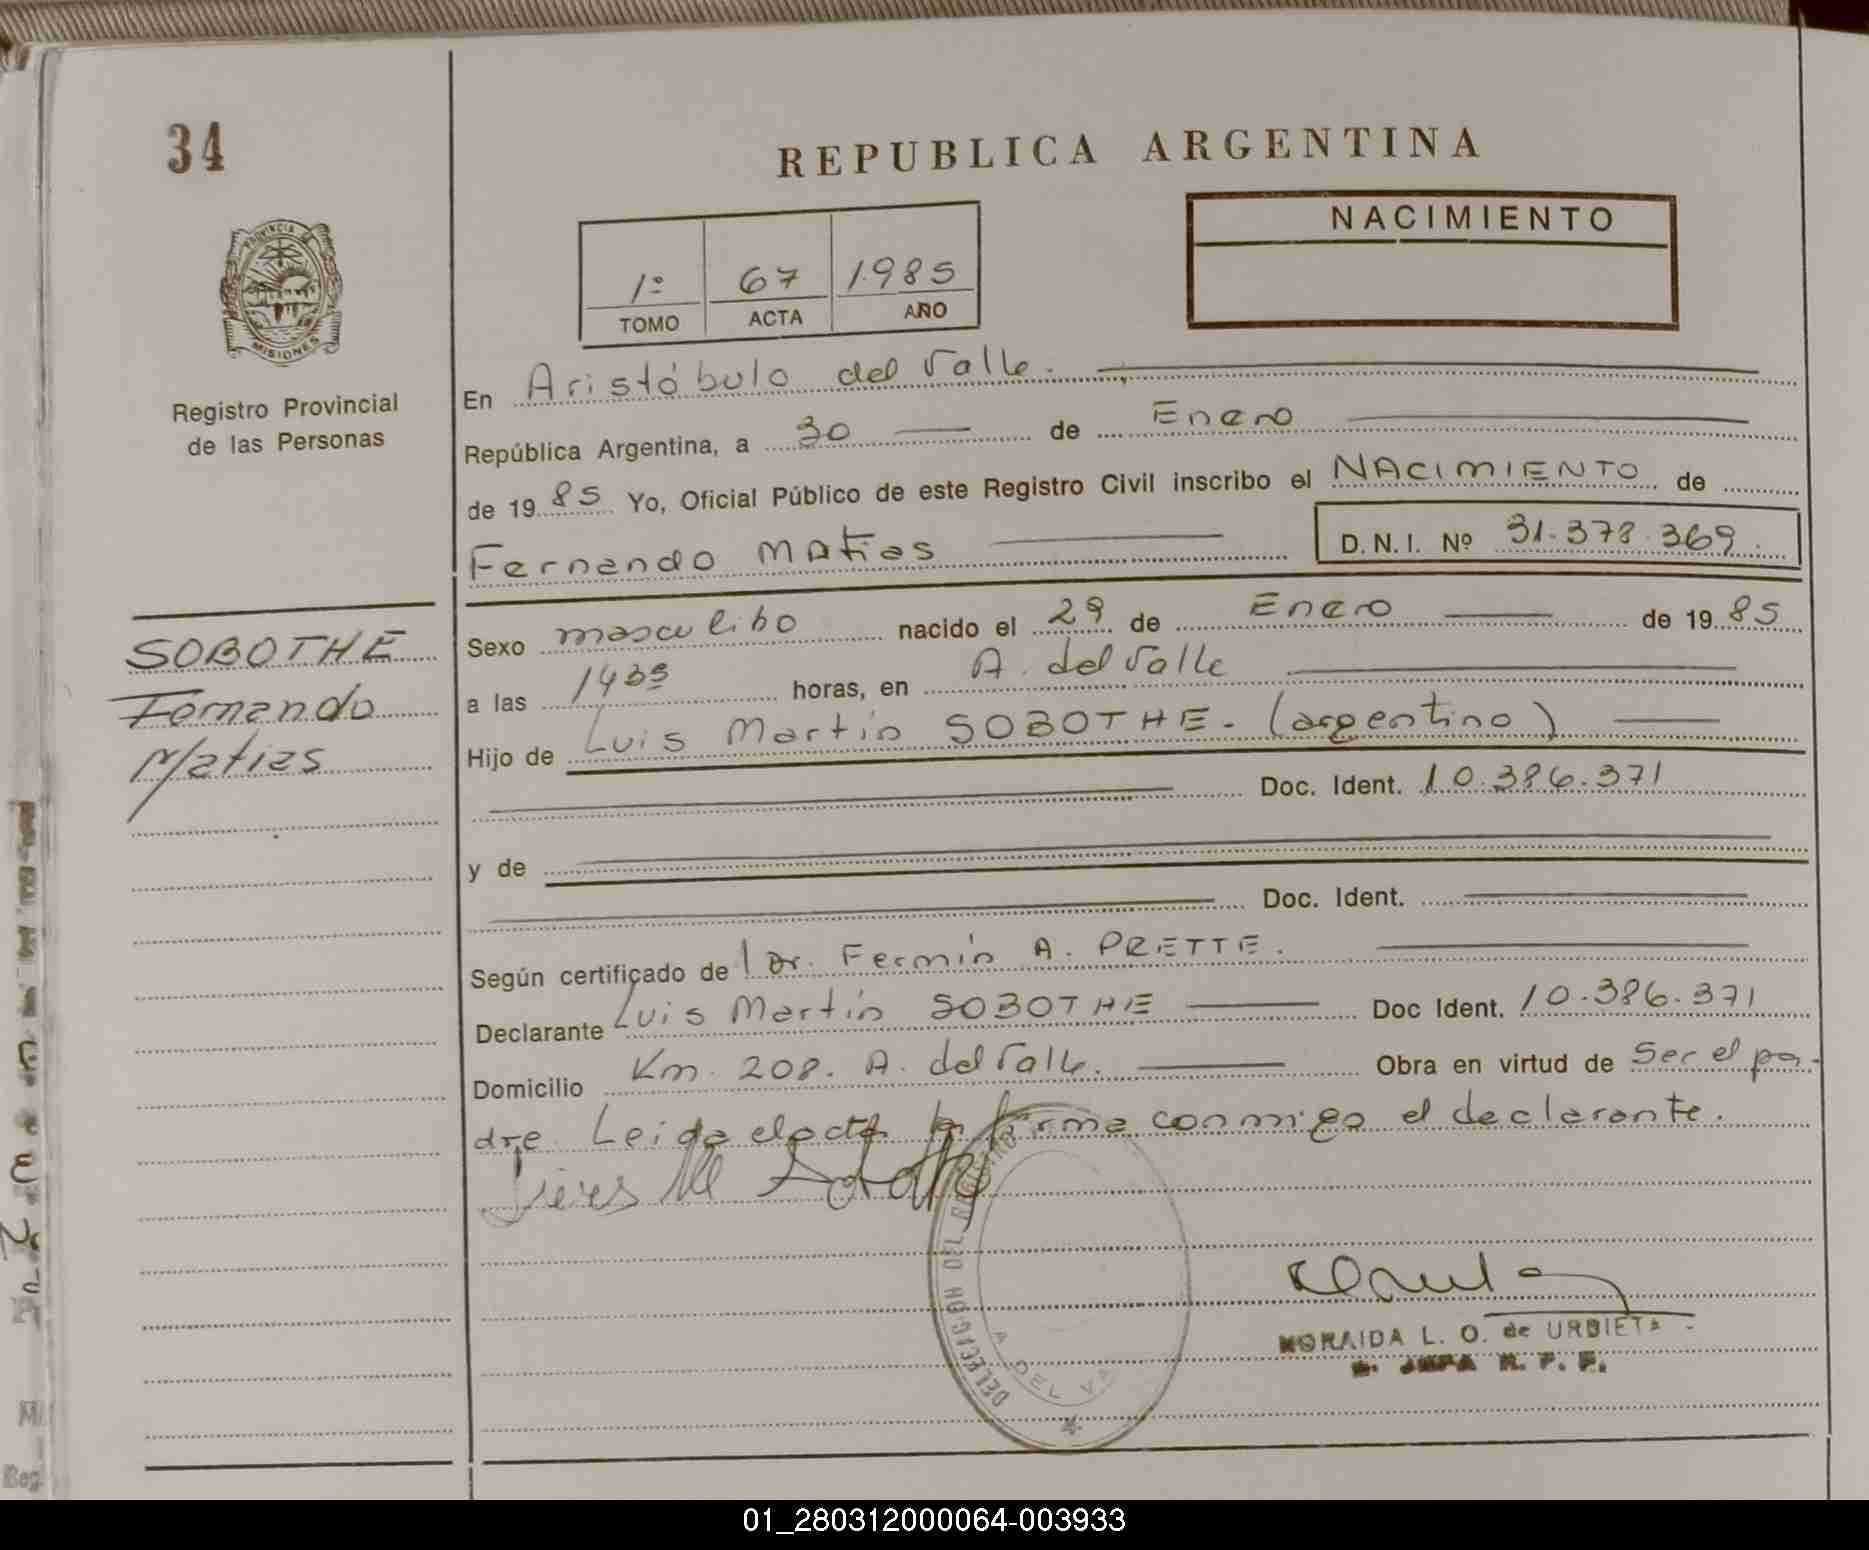 34
REPUBLICA ARGENTINA
NACIMIENTO
1º 67 1985
TOMO ACTA AÑO
PROVINCIA DE
MISIONES
Registro Provincial
de las Personas
En Aristóbulo del Valle.
República Argentina, a 30 de Enero
de 1985 Yo, Oficial Público de este Registro Civil inscribo el NACIMIENTO de
Fernando Matias D.N.I. Nº 31.378.369.
SOBOTHE
Fernando
Matias
Sexo masculino nacido el 29 de Enero de 1985
a las 1435 horas, en A. del Valle
Hijo de Luis Martín SOBOTHE. (argentino)
Doc. Ident. 10.386.371
y de
Doc. Ident.
Según certificado de l Dr. Fermín A. PRETTE.
Declarante Luis Martín SOBOTHE Doc Ident. 10.386.371
Domicilio Km. 208. A. del Valle. Obra en virtud de Ser el pa-
dre. Leida el acta la firma conmigo el declarante.
DELEGACION DEL REGISTRO
A. DEL VA
NORAIDA L. O. de URBIETA
JEFA R. P. P.
01_280312000064-003933